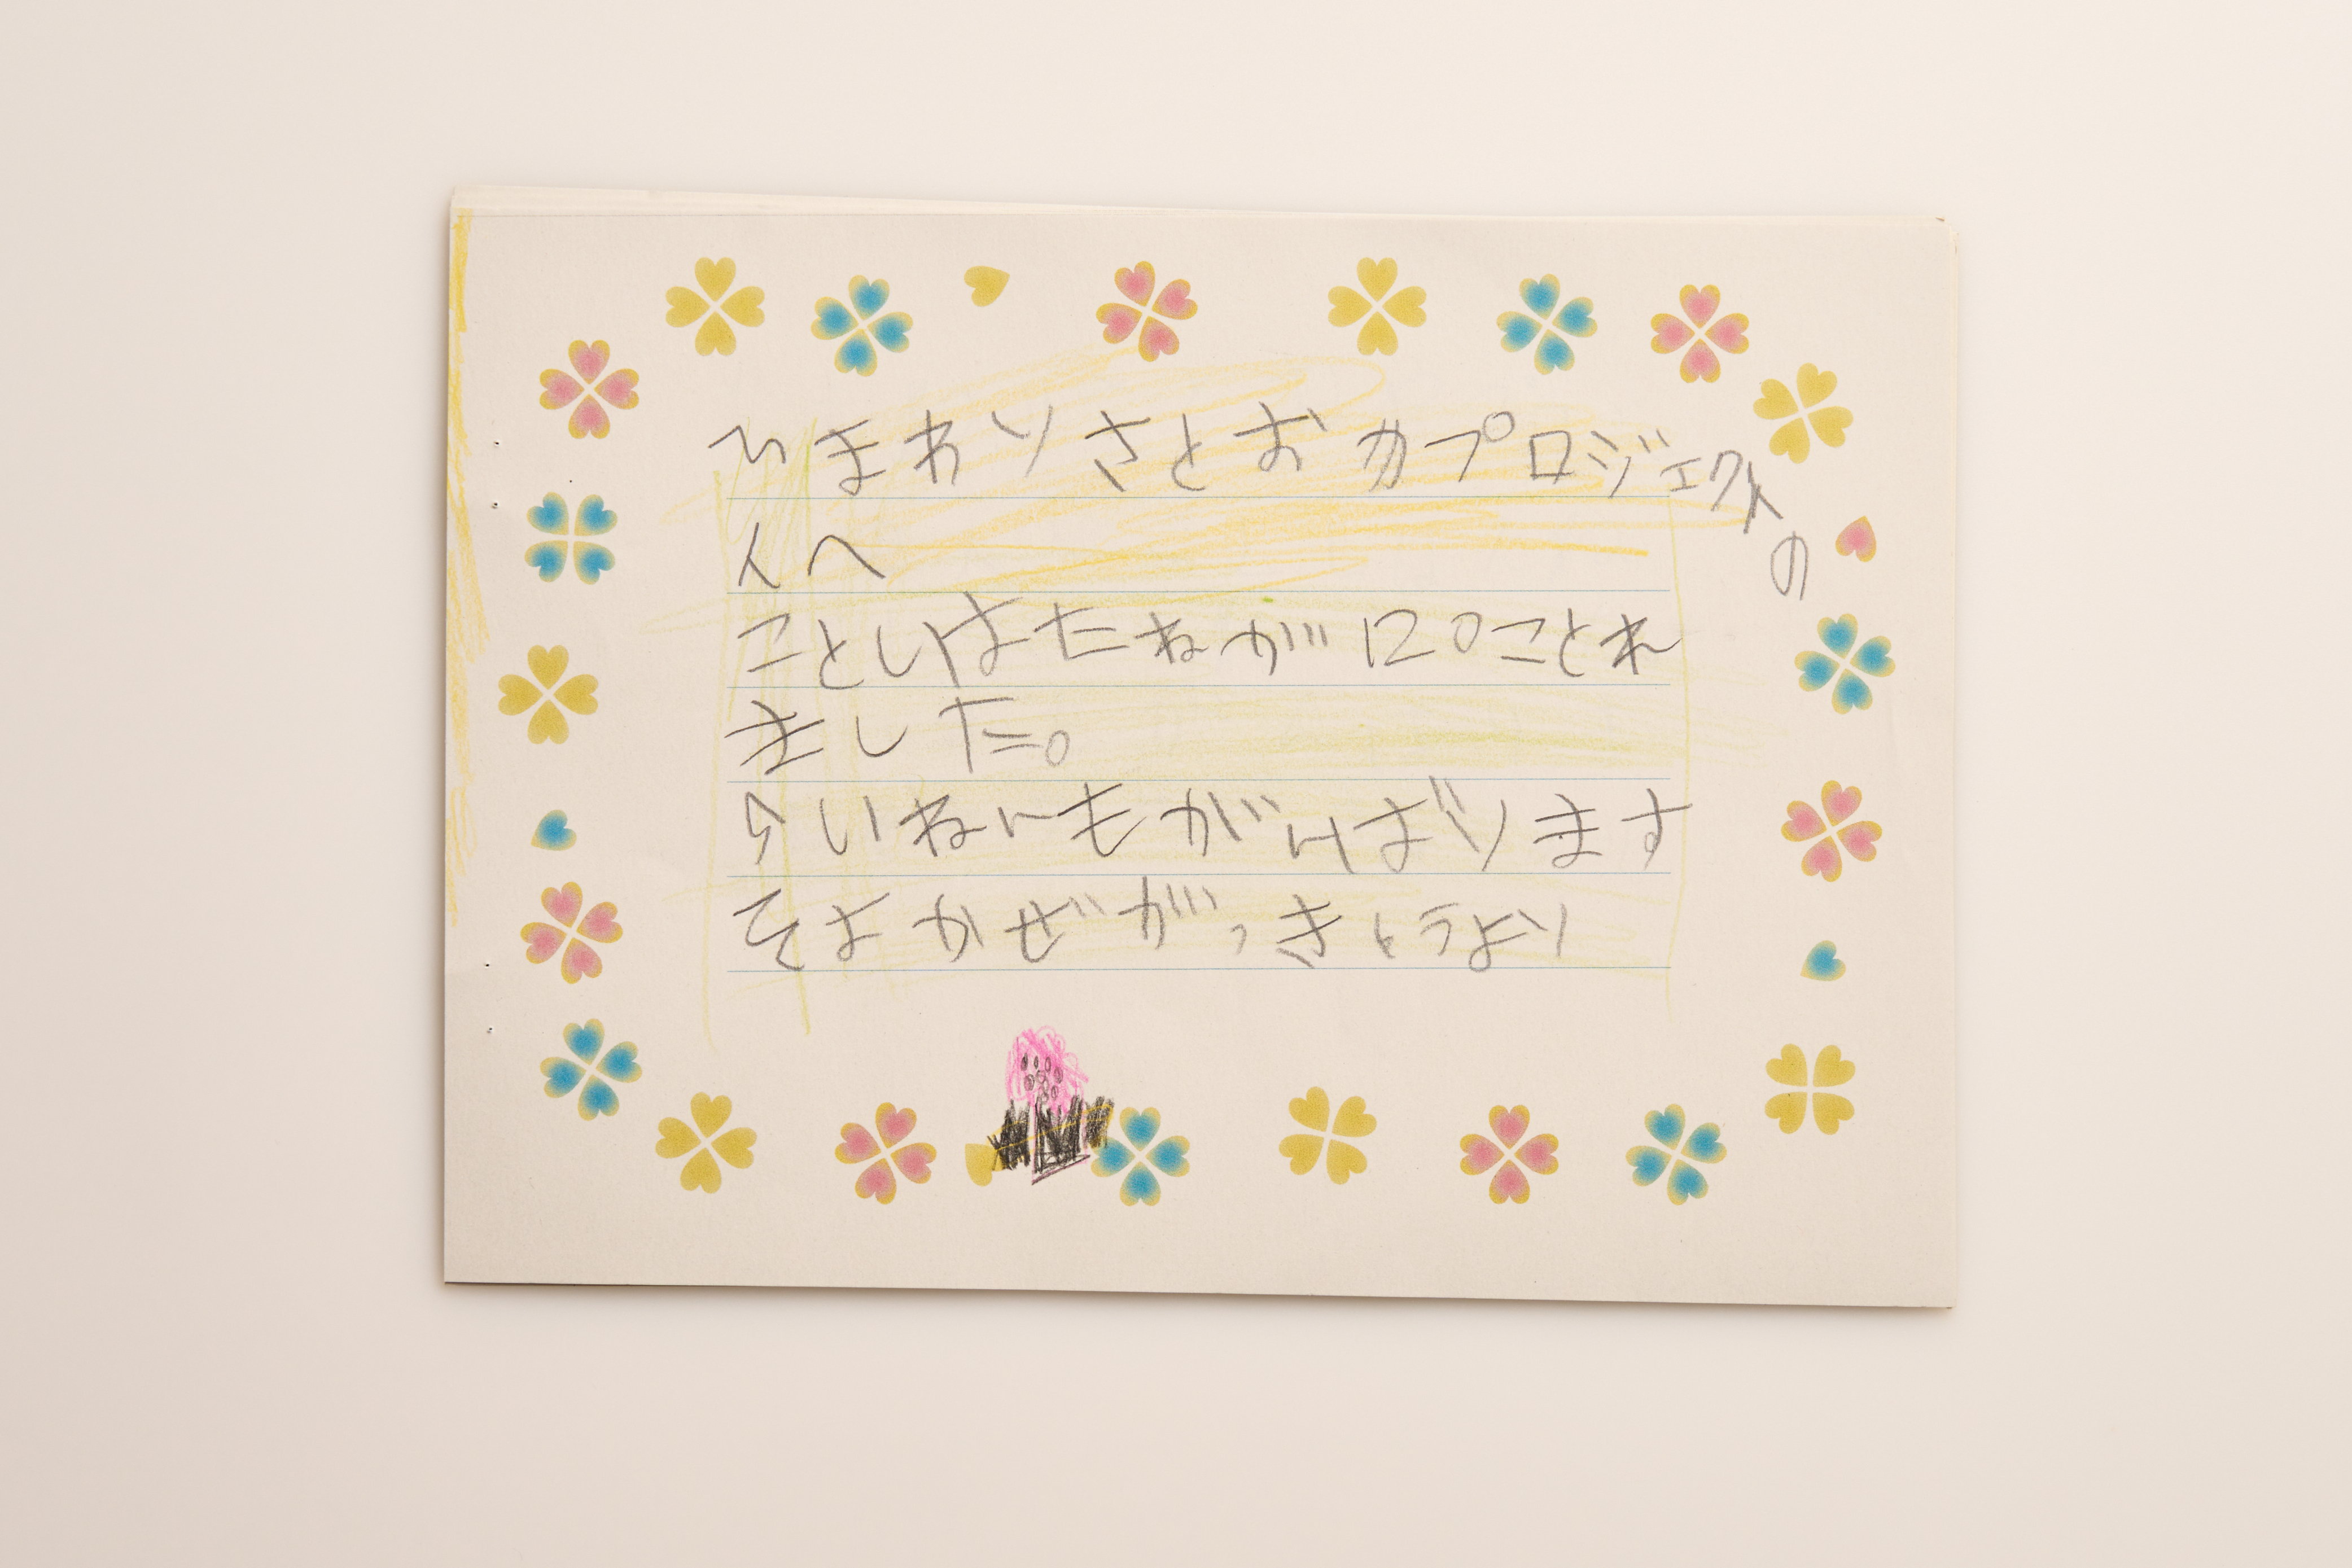 ひまわりさとおかプロジェクトの
人へ
ことしはたねが120ことれ
ました。
らいねんもがんばります
そよかぜがっきょうより